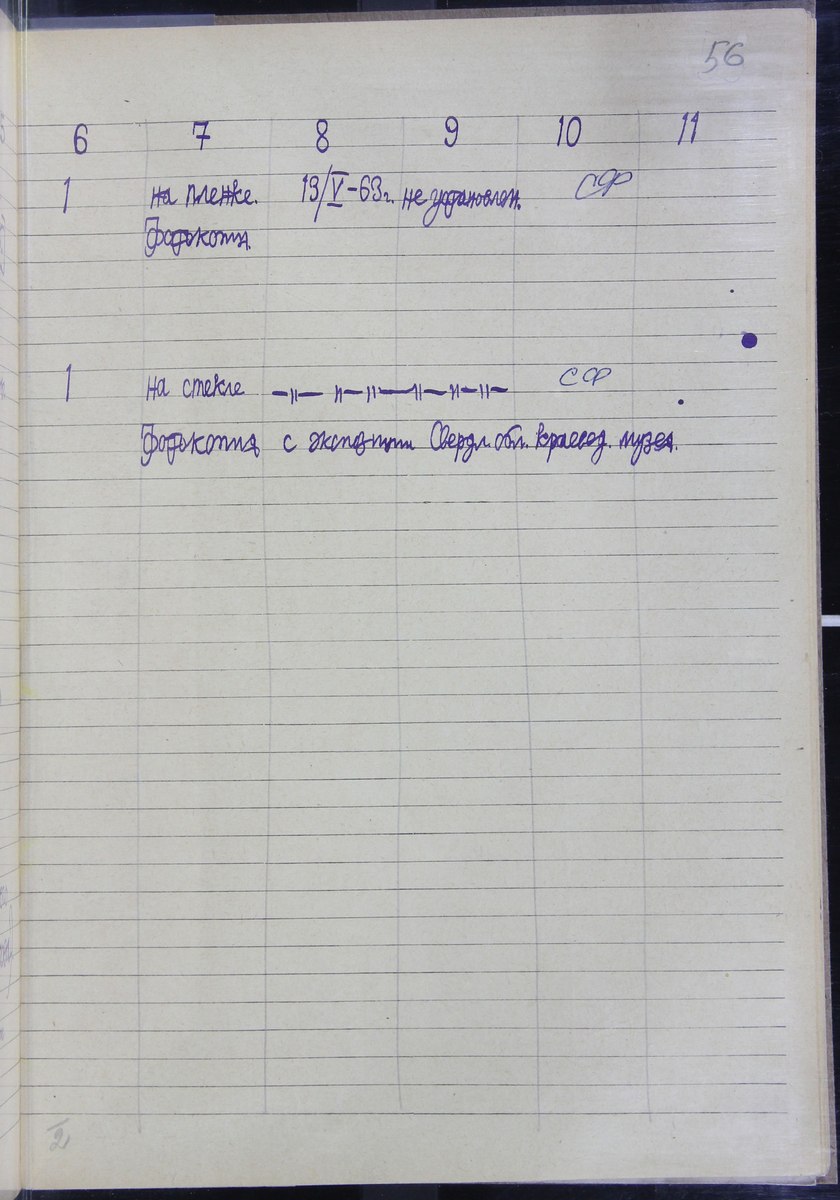 56
6 7 8 9 10 11
1 на пленке. 13/V-63г. не установлен. СФ
Фотокопия.
1 на стекле —"— "—"—"—"—"— СФ
Фотокопия с экспозиции Свердл. обл. краевед. музея.
2